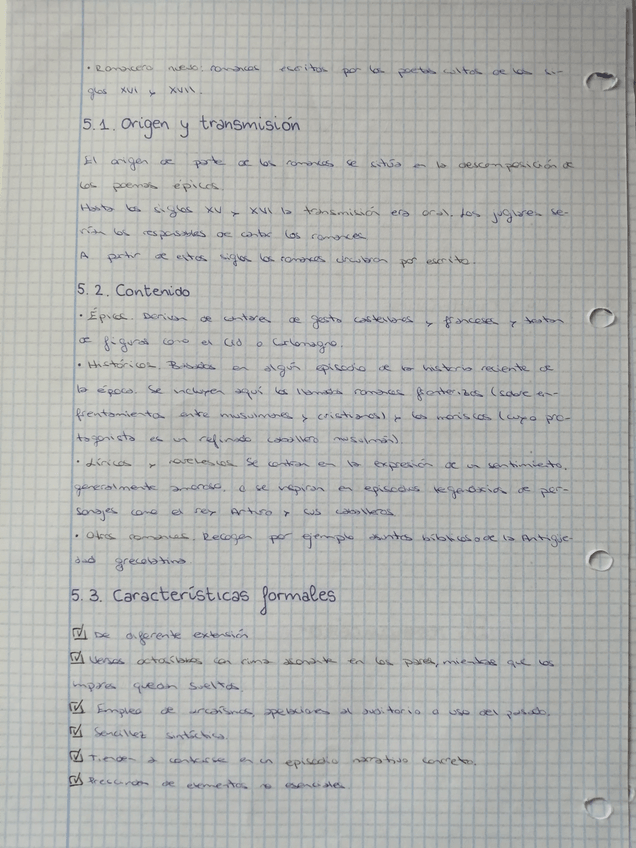 · Romancero nuevo: romances escritos por los poetas cultos de los si-
glos XVI y XVII.
5.1. Origen y transmisión
El origen de parte de los romances se sitúa en la descomposición de
los poemas épicos.
Hasta los siglos XV y XVI la transmisión era oral. Los juglares se-
rían los responsables de contar los romances.
A partir de estos siglos los romances circulaban por escrito.
5.2. Contenido
· Épicos. Derivan de cantares de gesta castellanos y franceses y tratan
de figuras como el Cid o Carlomagno.
· Históricos. Basados en algún episodio de la historia reciente de
la época. Se incluyen aquí los llamados romances fronterizos (sobre en-
frentamientos entre musulmanes y cristianos) y los moriscos (cuyo pro-
tagonista es un refinado caballero musulmán).
· Líricos y novelescos. Se centran en la expresión de un sentimiento,
generalmente amoroso, o se inspiran en episodios legendarios de per-
sonajes como el rey Arturo y sus caballeros.
· Otros romances. Recogen por ejemplo asuntos bíblicos o de la Antigue-
dad grecolatina.
5.3. Características formales
☑ De diferente extensión
☑ Versos octosílabos con rima asonante en los pares, mientras que los
impares quedan sueltos.
☑ Empleo de arcaísmos, apelaciones al auditorio o uso del pasado.
☑ Sencillez sintáctica
☑ Tienden a centrarse en un episodio narrativo concreto.
☑ Prescinden de elementos no esenciales